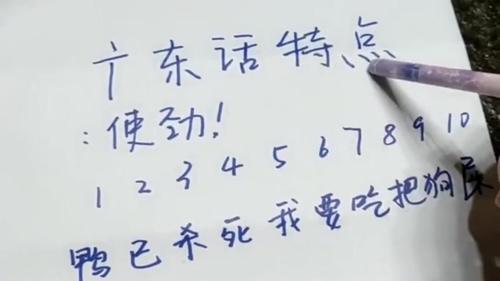 广东话特点
:使劲!
1 2 3 4 5 6 7 8 9 10
鸭已杀死我要吃把狗屎